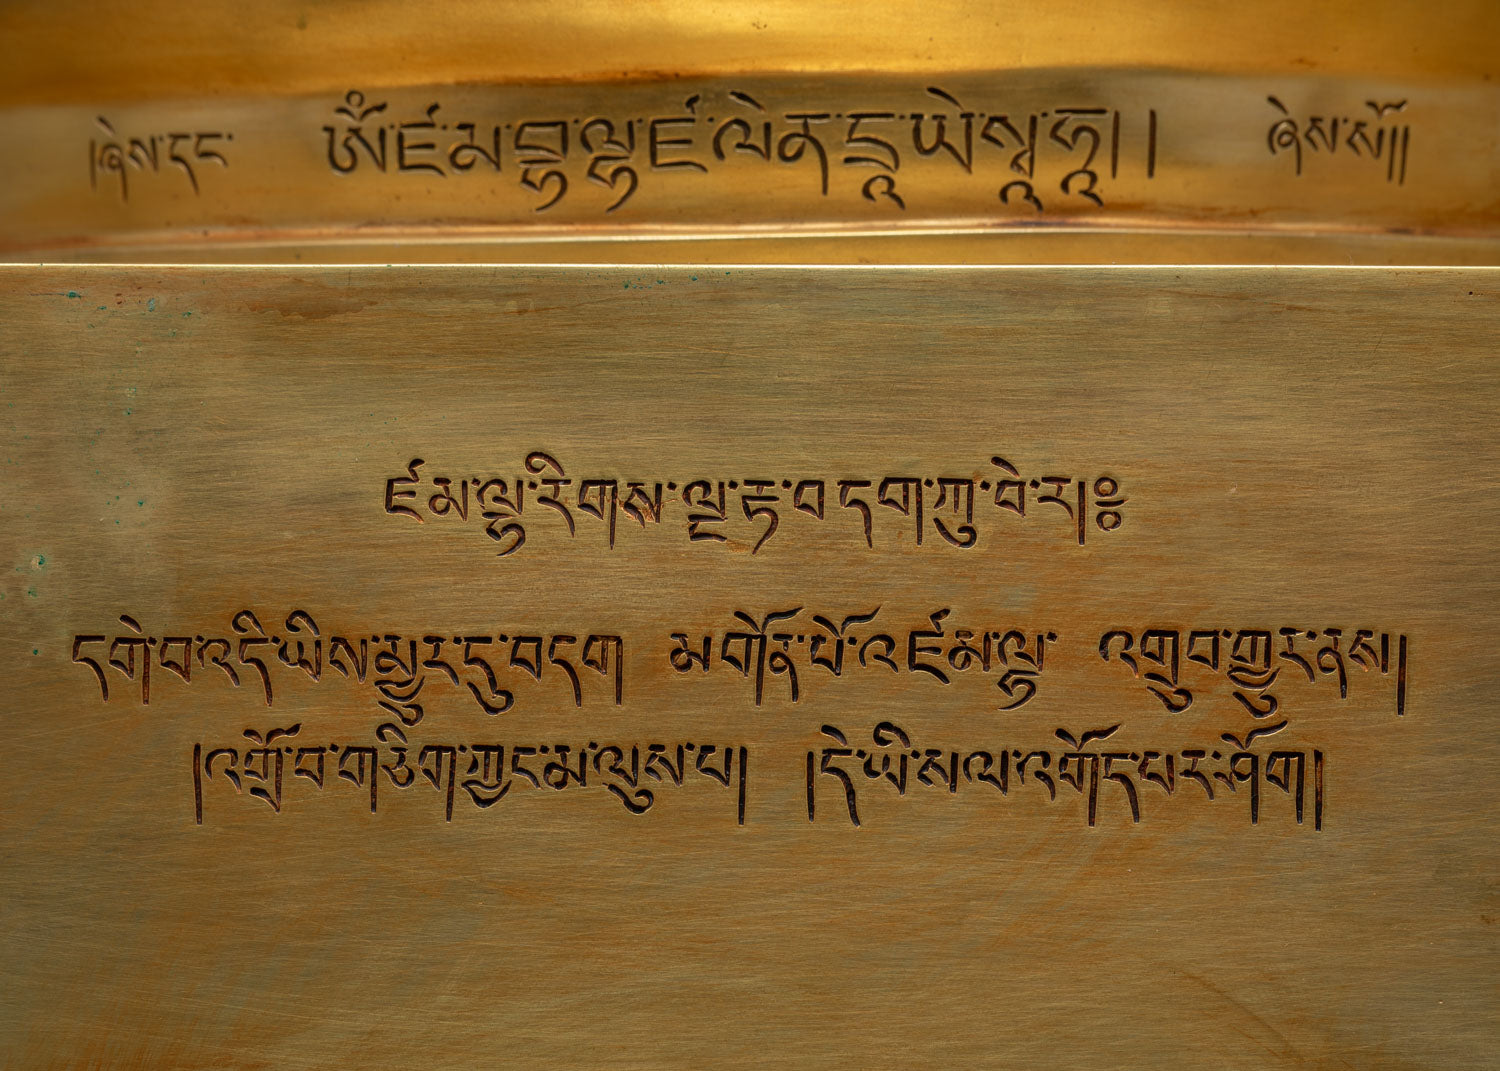 །ཞེས་དང་ ཨོཾ་ཛ་མ་བྷ་ལྷ་ཛ་ལེན་དྲཱ་ཡེ་སྭཱ་ཧཱ།། ཞེས་སོ།།
ཛམ་ལྷ་རིགས་ལྔ་རྟ་བདག་ཀུ་བེ་ར།༔
དགེ་བ་འདི་ཡིས་མྱུར་དུ་བདག མགོན་པོ་འཛམ་ལྷ་ འགྲུབ་གྱུར་ནས།
།འགྲོ་བ་གཅིག་ཀྱང་མ་ལུས་པ། །དེ་ཡི་སལ་འགོད་པར་ཤོག།